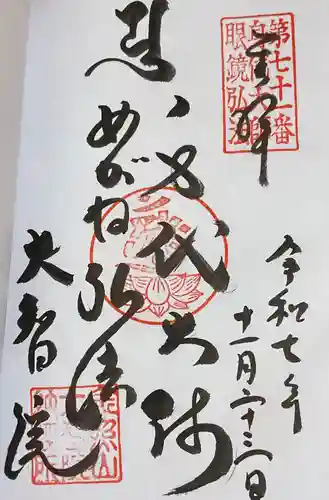 奉拝
第七十一番
身代大師
眼鏡弘法
令和七年
十一月二十三日
身代大師
めがね弘法
大智院